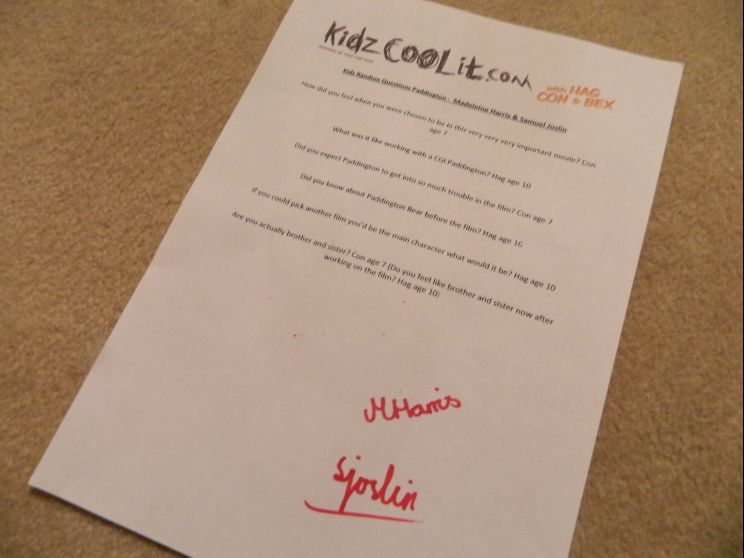 Kidz COOLit.com
with HAG
CON & BEX
Kids Random Questions Paddington - Madeleine Harris & Samuel Joslin
How did you feel when you were chosen to be in this very very very important movie? Con
age 7
What was it like working with a CGI Paddington? Hag age 10
Did you expect Paddington to get into so much trouble in the film? Con age 7
Did you know about Paddington Bear before the film? Hag age 10
If you could pick another film you'd be the main character what would it be? Hag age 10
Are you actually brother and sister? Con age 7 (Do you feel like brother and sister now after
working on the film? Hag age 10)
MHarris
sjoslin